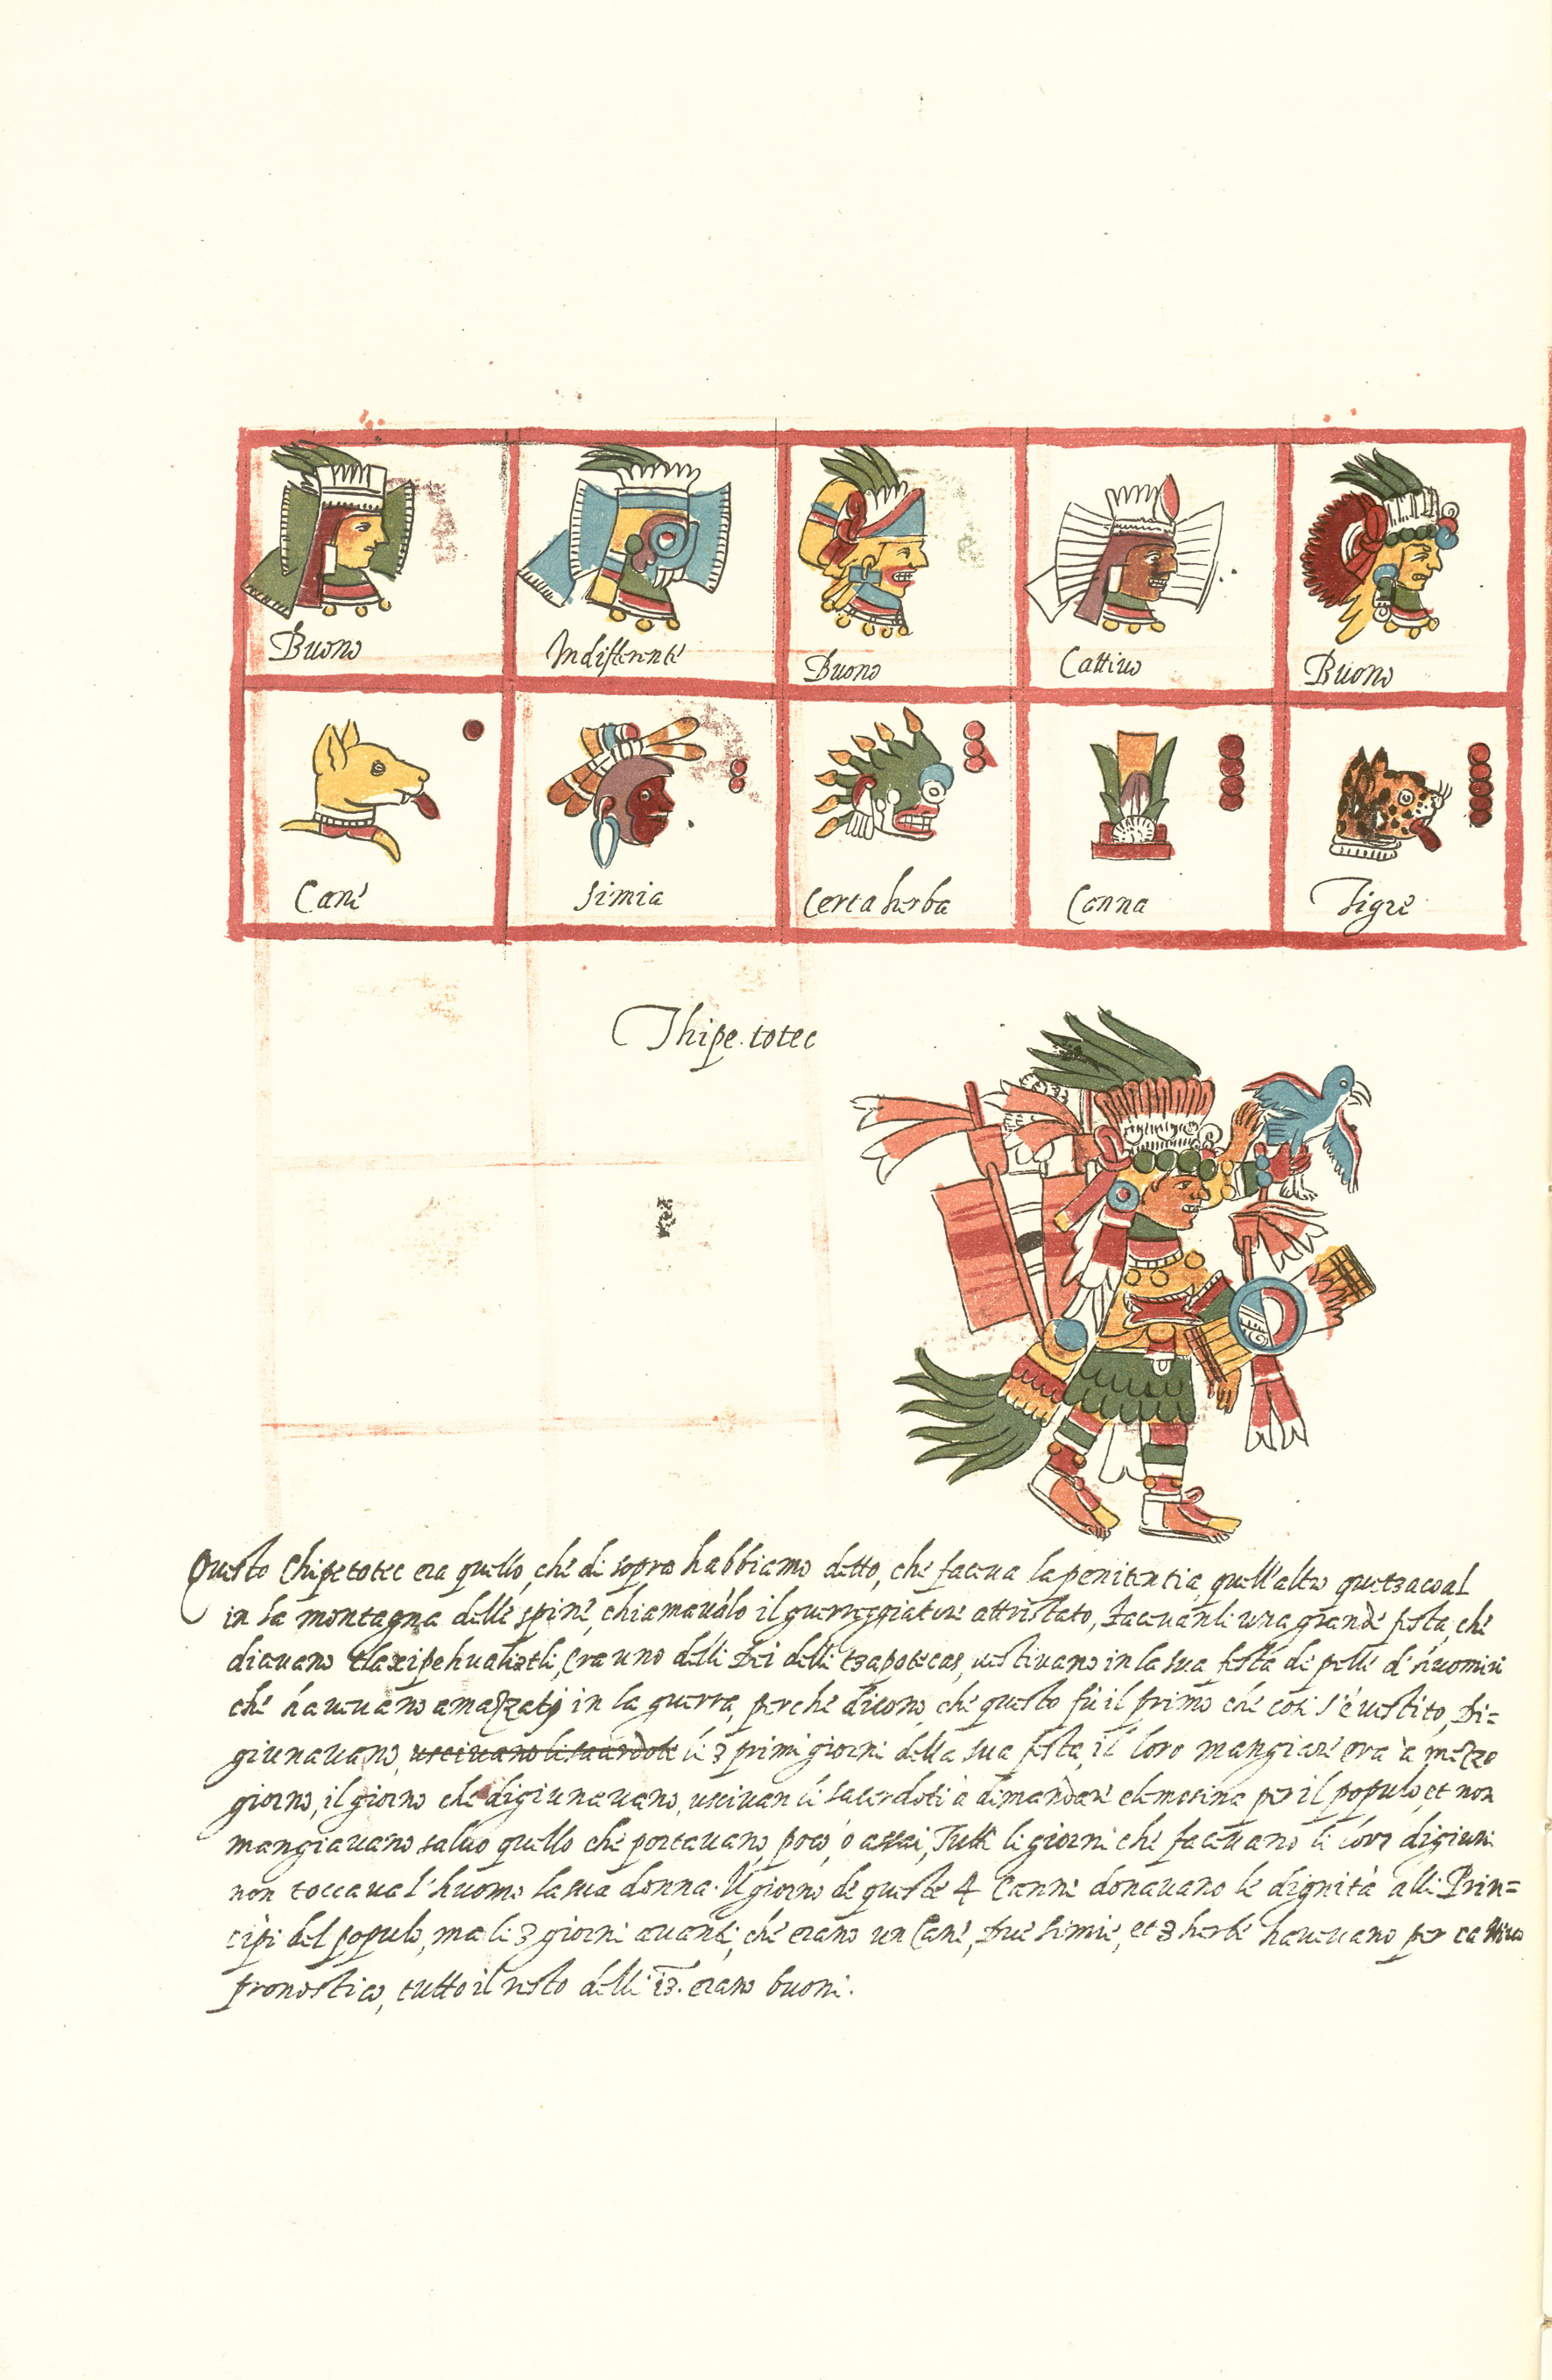 Buono Indifferente Buono Cattiuo Buono
Cane Simia Certa herba Canna Tigre
Thipe.totec
Questo Chipetotec era quello, che di sopra habbiamo detto, che faceua la penitentia, quell'altro quetzacoal
in la montagna delle spine, chiamauàlo il guerreggiatore attristato, Faceuanli una grande festa, che
diauano tlaxipehualiztli, Era uno delli Dei delli tzapotecas, uestiuano in la sua festa de pelle de huomini
che haueuano amazzati in la guerra, perche dicono, che questo fù il primo che cosi s'è uestito, Di=
giunauano, usciuano li sacerdoti li 3 primi giorni della sua festa, il loro mangiare era à mezzo
giorno, il giorno che digiunauano, usciuan li sacerdoti à dimandare elemosina per il populo, et non
mangiauano saluo quello che portauano, poco, ò assai, Tutti li giorni che faceuano li loro digiuni
non toccaua l'huomo la sua donna. Il giorno de queste 4 Canne donauano le dignità alli Prin=
cipi del populo, ma li 3 giorni auanti, che erano un Cane, Due simie, et 3 herbe haueuano per cattiuo
pronostico, tutto il resto delli 13. erano buoni.